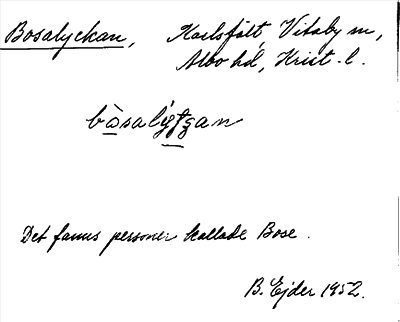 Bosalyckan, Karlsfält, Vitaby sn,
Albo hd, Krist. l.
bòsalýtgan
Det fanns personer kallade Bose.
B. Ejder 1952.